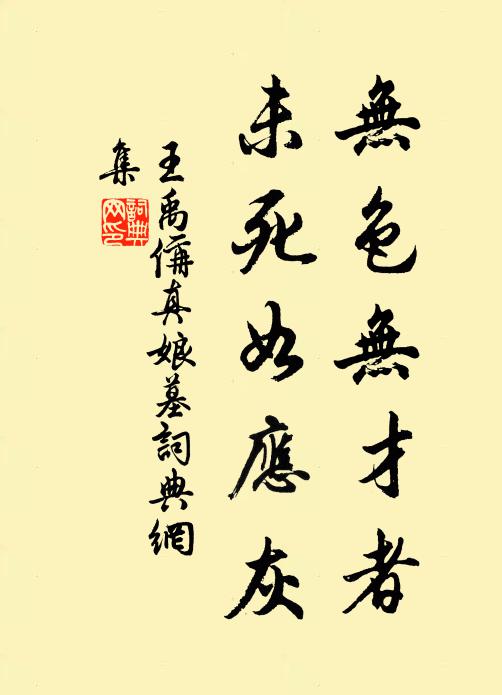 無色無才者
未死如應灰
王禹偁真娘墓詞典網
集
詞典
网印